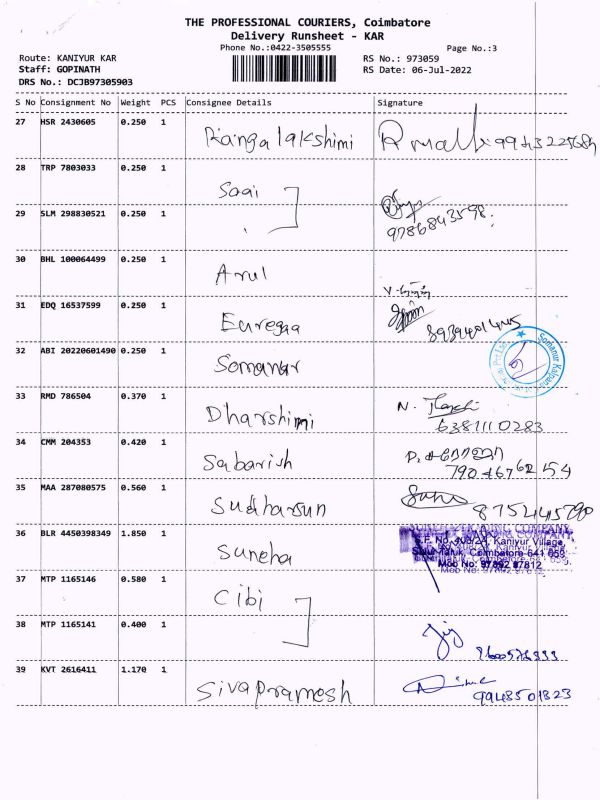 THE PROFESSIONAL COURIERS, Coimbatore
Delivery Runsheet - KAR
Phone No.:0422-3505555
Page No.:3
Route: KANIYUR KAR
RS No.: 973059
Staff: GOPINATH
RS Date: 06-Jul-2022
DRS No.: DCJB97305903
S No Consignment No Weight PCS Consignee Details Signature
27 HSR 2430605 0.250 1 Rangalakshimi
28 TRP 7803033 0.250 1 Saai
29 SLM 298830521 0.250 1 9786843598
30 BHL 100064499 0.250 1 Arul
31 EDQ 16537599 0.250 1 Euregaa
32 ABI 20220601490 0.250 1 Somanur
33 RMD 786504 0.370 1 Dharshimi 6381110283
34 CMM 204353 0.420 1 Sabarish
35 MAA 287080575 0.560 1 Sudharsun 8754445790
36 BLR 4450398349 1.850 1 Suneha
S.F. No. 408/2A, Kaniyur Village,
Sulur Taluk, Coimbatore-641 659.
Mob No: 97892 87812
37 MTP 1165146 0.580 1 Cibi
38 MTP 1165141 0.400 1
39 KVT 2616411 1.170 1 Sivapramesh